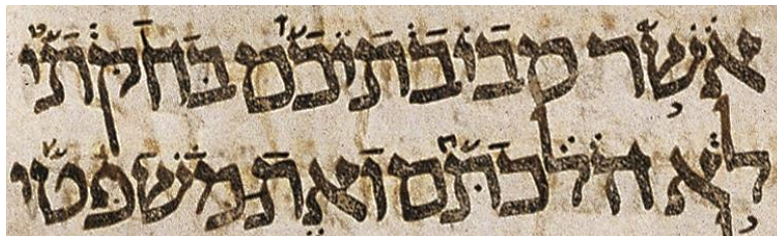 אשר סביבתיכם בחקתי
לא הלכתם ואת משפטי